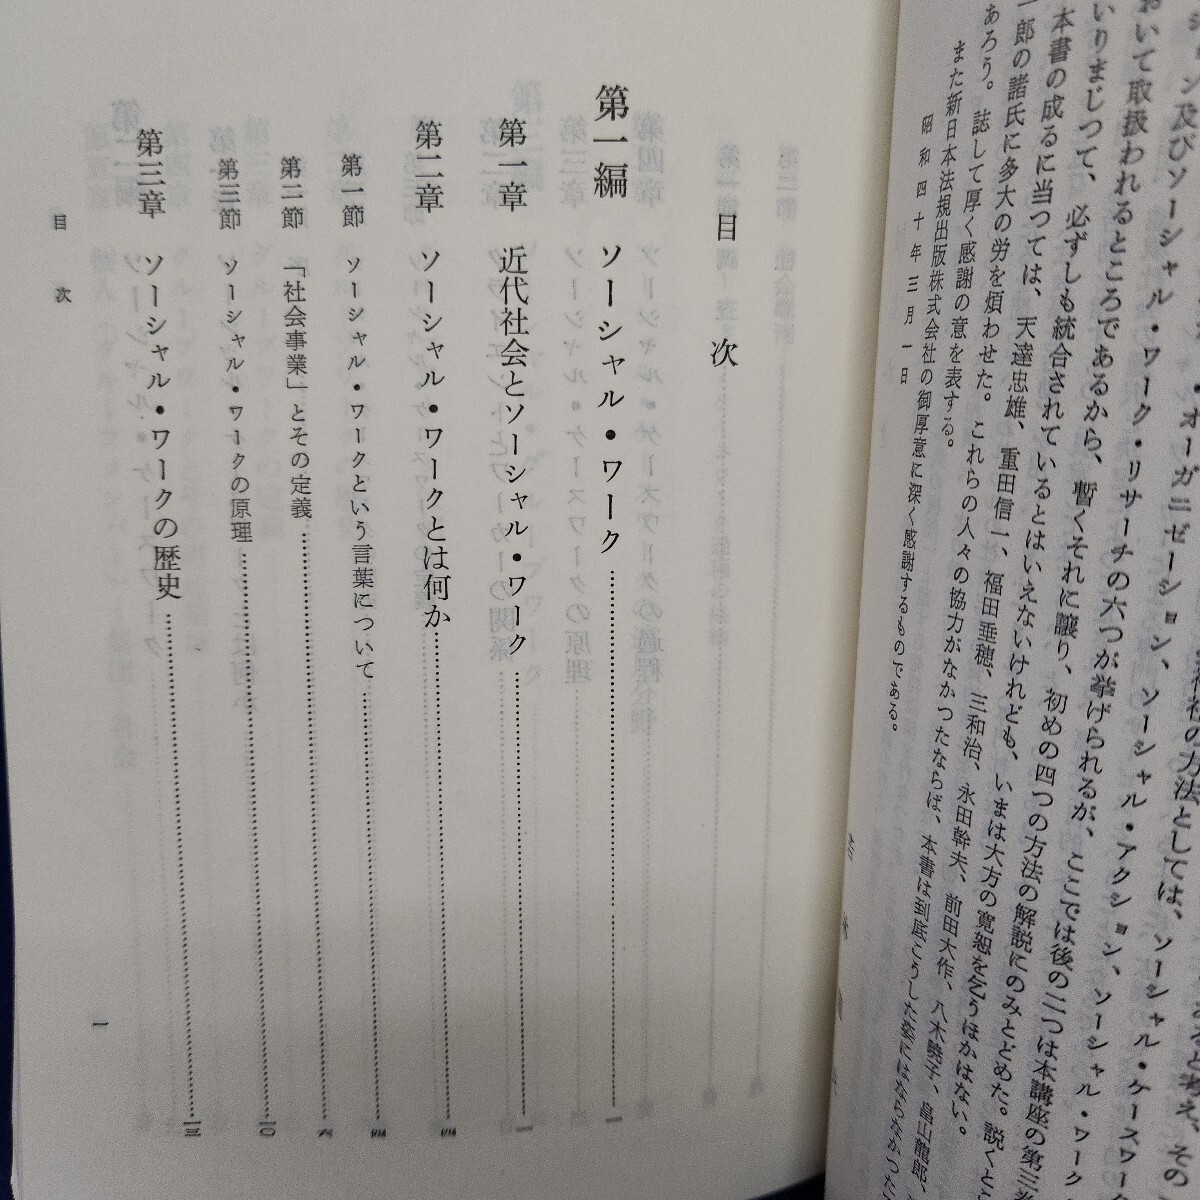 ション及びソーシャル・ワーク・リサーチの六つが挙げられるが、ここでは後の二つは本講座の第三
おいて取扱われるところであるから、暫くそれに譲り、初めの四つの方法の解説にのみとどめた。説くと
いりまじつて、必ずしも統合されているとはいえないけれども、いまは大方の寛恕を乞うほかはない。
本書の成るに当つては、天達忠雄、重田信一、福田垂穂、三和治、永田幹夫、前田大作、八木暁子、畠山龍郎、
一郎の諸氏に多大の労を煩わせた。これらの人々の協力がなかつたならば、本書は到底こうした姿にはならなかつた
あろう。誌して厚く感謝の意を表する。
また新日本法規出版株式会社の御厚意に深く感謝するものである。
昭和四十年三月一日
目次
第一編 ソーシャル・ワーク……一
第一章 近代社会とソーシャル・ワーク……一
第二章 ソーシャル・ワークとは何か……四
第一節 ソーシャル・ワークという言葉について……四
第二節 「社会事業」とその定義……六
第三節 ソーシャル・ワークの原理……一〇
第三章 ソーシャル・ワークの歴史……一三
目次
一